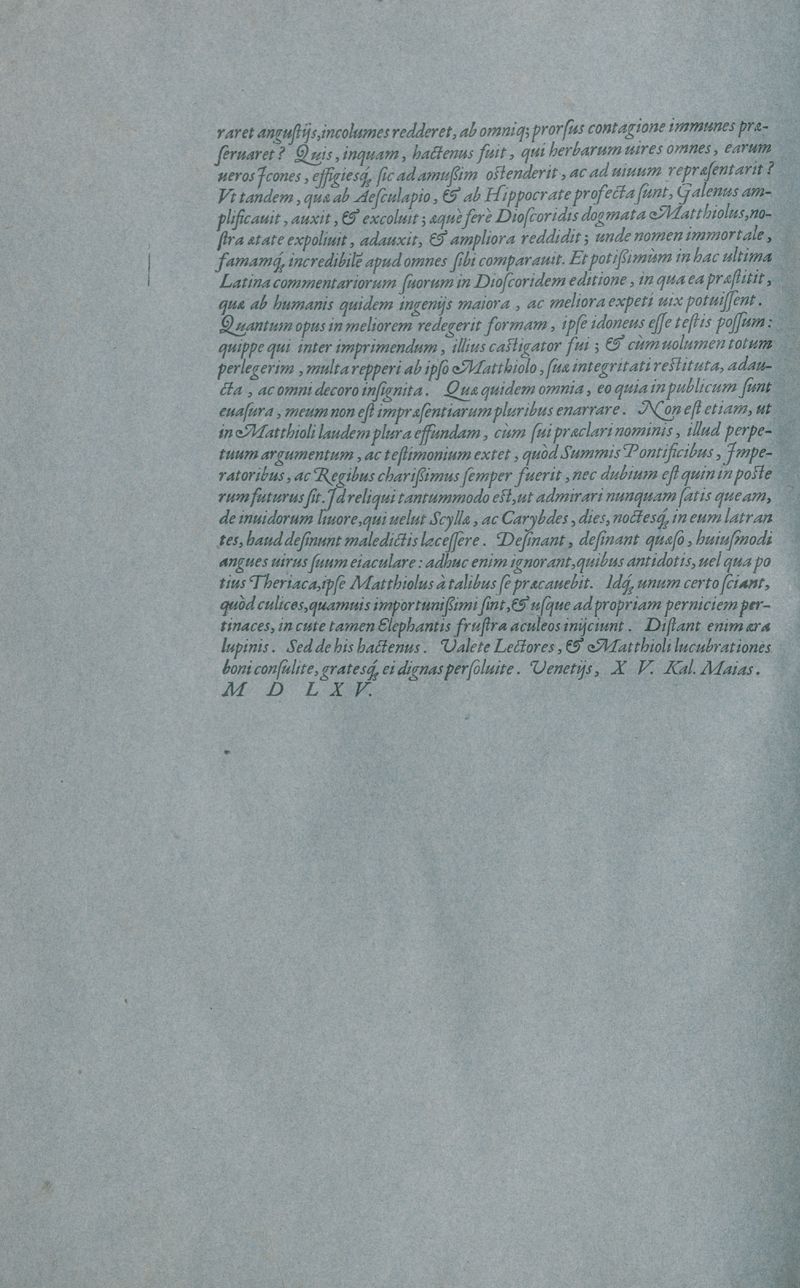 raret angustijs,incolumes redderet, ab omniq; prorsus contagione immunes præ-
seruaret? Quis, inquam, hactenus fuit, qui herbarum uires omnes, earum
ueros Icones, effigiesq́; sic ad amußim ostenderit, ac ad uiuum repræsentarit?
Vt tandem, quæ ab Aesculapio, & ab Hippocrate profecta sunt, Galenus am-
plificauit, auxit, & excoluit; æquè ferè Dioscoridis dogmata Matthiolus,no-
stra ætate expoliuit, adauxit, & ampliora reddidit; unde nomen immortale,
famamq́; incredibilē apud omnes sibi comparauit. Et potißimùm in hac ultima
Latina commentariorum suorum in Dioscoridem editione, in qua ea præstitit,
quæ ab humanis quidem ingenijs maiora, ac meliora expeti uix potuissent.
Quantum opus in meliorem redegerit formam, ipse idoneus esse testis possum:
quippe qui inter imprimendum, illius castigator fui; & cùm uolumen totum
perlegerim, multa repperi ab ipso Matthiolo, suæ integritati restituta, adau-
cta, ac omni decoro insignita. Quæ quidem omnia, eo quia in publicum sunt
euasura, meum non est impræsentiarum pluribus enarrare. Non est etiam, ut
in Matthioli laudem plura effundam, cùm sui præclari nominis, illud perpe-
tuum argumentum, ac testimonium extet, quòd Summis Pontificibus, Impe-
ratoribus, ac Regibus charißimus semper fuerit, nec dubium est quin in poste
rum futurus sit. Id reliqui tantummodo est,ut admirari nunquam satis queam,
de inuidorum liuore,qui uelut Scylla, ac Carybdes, dies, noctesq́; in eum latran
tes, haud desinunt maledictis lacessere. Desinant, desinant quæso, huiusmodi
angues uirus suum eiaculare: adhuc enim ignorant,quibus antidotis, uel qua po
tius Theriaca,ipse Matthiolus à talibus se præcauebit. Idq́; unum certo sciant,
quòd culices,quamuis importunißimi sint,& usque ad propriam perniciem per-
tinaces, in cute tamen Elephantis frustra aculeos inijciunt. Distant enim æra
lupinis. Sed de his hactenus. Valete Lectores, & Matthioli lucubrationes
boni consulite, gratesq́; ei dignas persoluite. Venetijs, X V. Kal. Maias.
M D L X V.